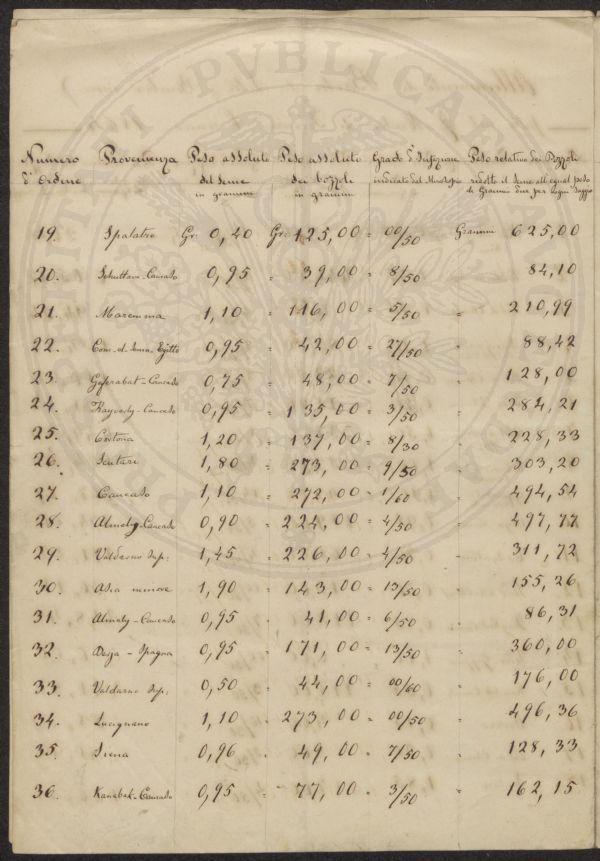 Numero Provenienza Peso assoluto Peso assoluto Grado d'Infezione Peso relativo dei Bozzoli
d'Ordine del Seme dei bozzoli indicato dal Microscopio ridotto il Seme all'egual peso
in grammi in grammi di Grammi due per ogni Saggio
19. Spalatro Gr: 0,40 Gr: 125,00 = 00/50 Grammi 625,00
20. Caucaso 0,95 " 39,00 = 8/50 " 84,10
21. Maremma 1,10 " 116,00 = 5/50 " 210,99
22. Egitto 0,95 " 42,00 = 27/50 " 88,42
23. Caucaso 0,75 " 48,00 = 7/50 " 128,00
24. Caucaso 0,95 " 135,00 = 3/50 " 284,21
25. Cortona 1,20 " 137,00 = 8/30 " 228,33
26. Scutari 1,80 " 273,00 = 9/50 " 303,20
27. Caucaso 1,10 " 272,00 = 1/60 " 494,54
28. Caucaso 0,90 " 224,00 = 4/50 " 497,77
29. Valdarno Sup: 1,45 " 226,00 = 4/50 " 311,72
30. Asia minore 1,90 " 143,00 = 13/50 " 155,26
31. Almely-Caucaso 0,95 " 41,00 = 6/50 " 86,31
32. Spagna 0,95 " 171,00 = 13/50 " 360,00
33. Valdarno Sup. 0,50 " 44,00 = 00/60 " 176,00
34. Lucignano 1,10 " 273,00 = 00/50 " 496,36
35. Siena 0,96 " 49,00 = 7/50 " 128,33
36. Caucaso 0,95 " 77,00 = 3/50 " 162,15